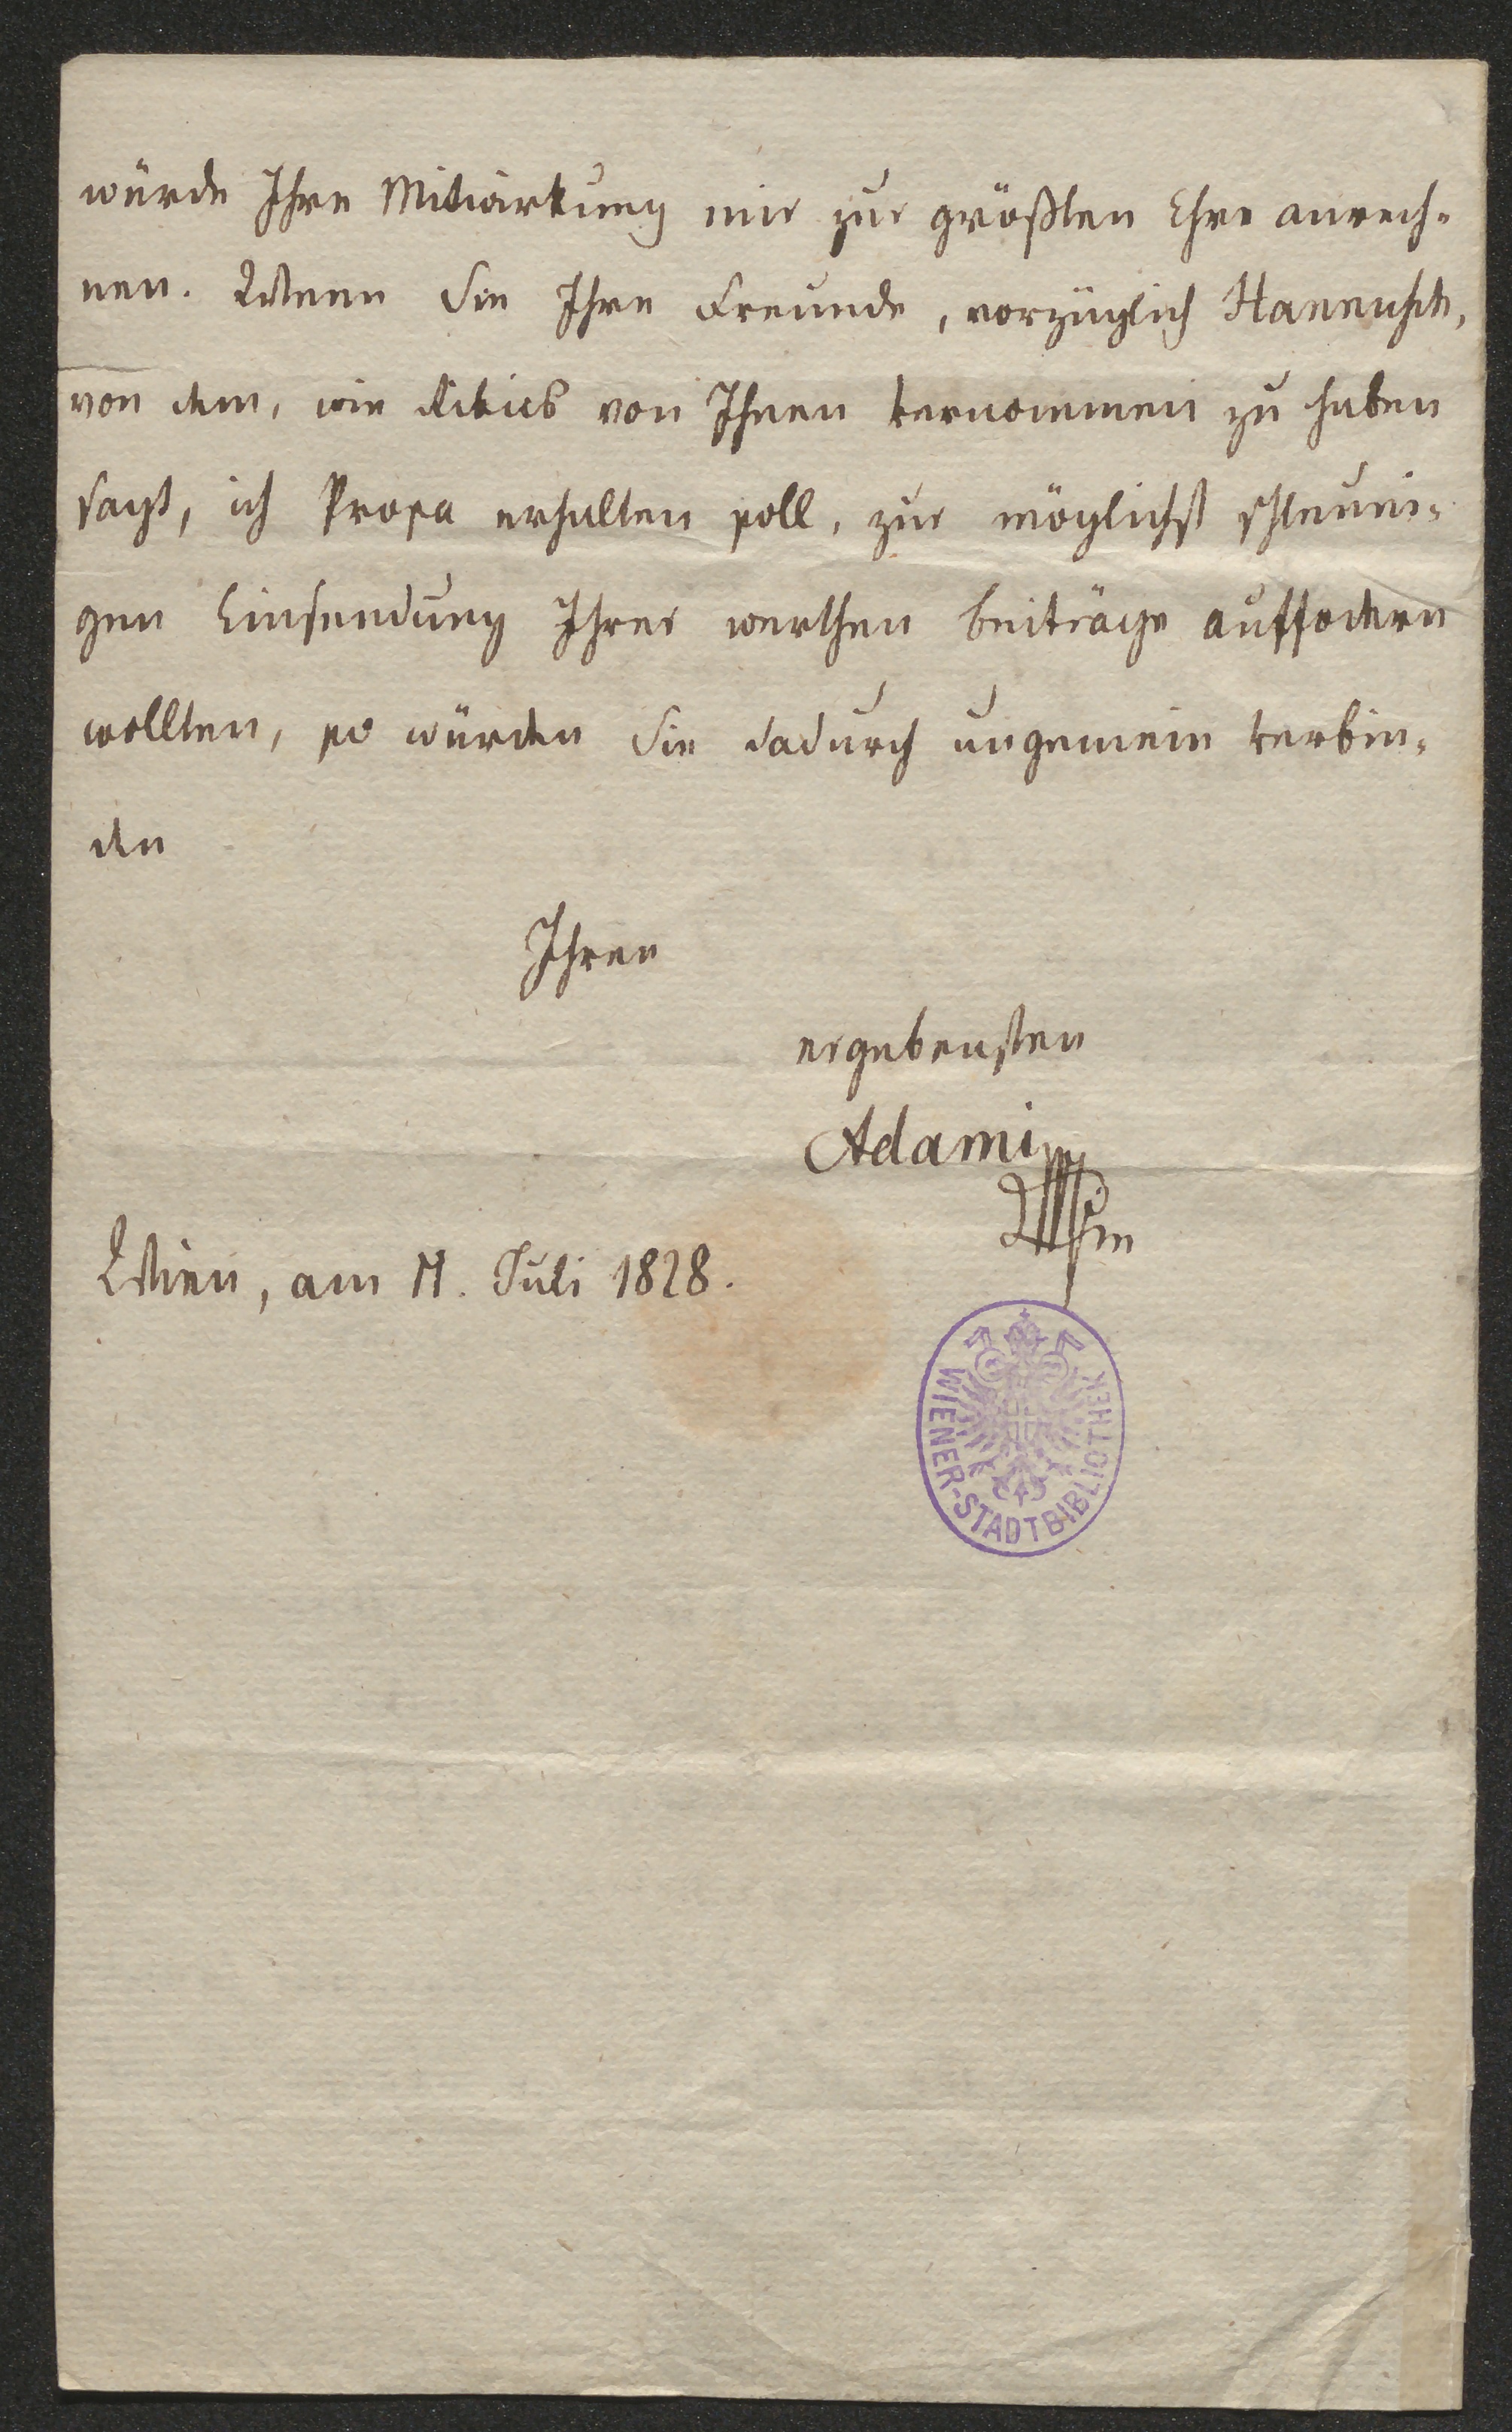 würde Ihre Mitwirkung mir zur größten Ehre anrech-
nen. Wenn Sie Ihre Freunde, vorzüglich Hannusch,
von dem, wie von Ihnen vernommen zu haben
sagt, ich Prosa erhalten soll, zur möglichst schleuni-
gen Einsendung Ihrer werthen Beiträge auffodern
wollten, so würden Sie dadurch ungemein verbin-
den
Ihren
ergebensten
Adami
Wien, am 11. Juli 1828.
WIENER-STADTBIBLIOTHEK